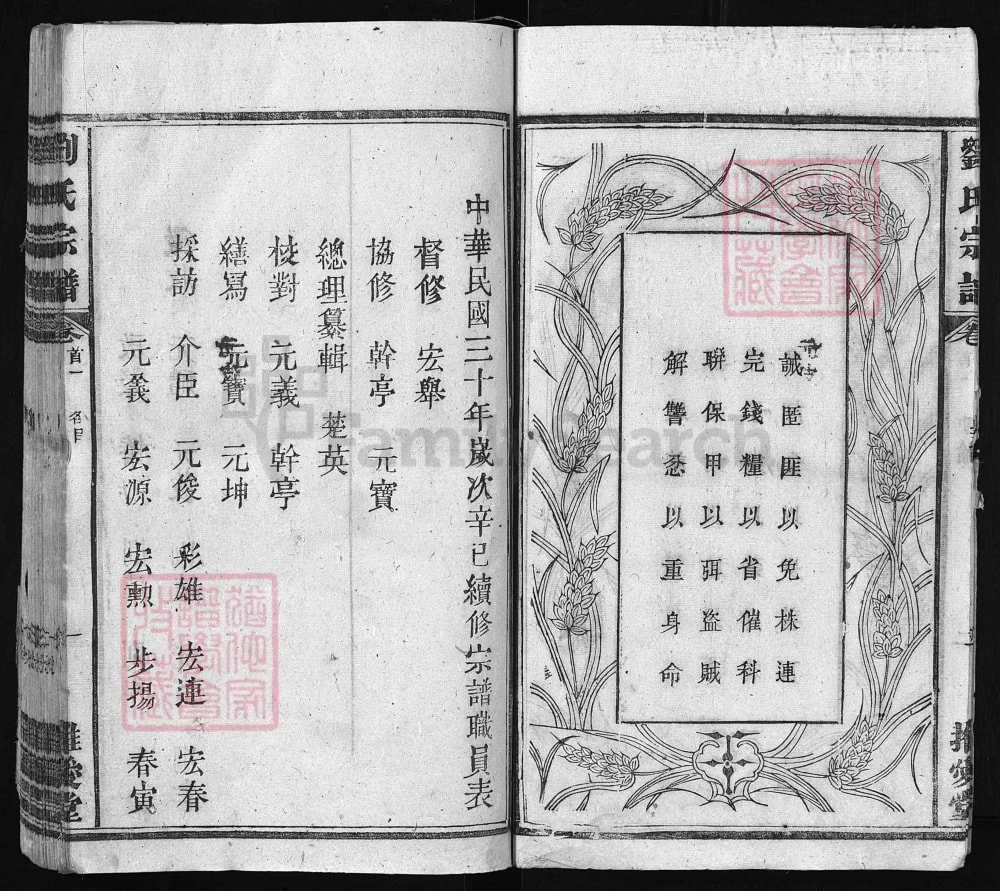 劉氏宗譜
卷
推愛堂
誡匿匪以免株連
完錢糧以省催科
聯保甲以弭盜賊
解讐忿以重身命
中華民國三十年歲次辛巳續修宗譜職員表
督修 宏舉
協修 幹亭 元寶
總理纂輯 楚英
校對 元義 幹亭
繕寫 元寶 元坤
採訪 介臣 元俊 彩雄 宏連 宏春
元義 宏源 宏勳 步揚 春寅
氏宗譜
卷首一
名目
愛堂
FamilySearch